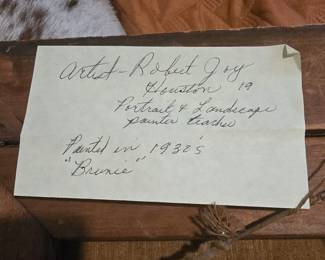 Artist - Robert Joy
Houston 19
Portrait & Landscape
painter teacher
Painted in 1932's
"Brunie"